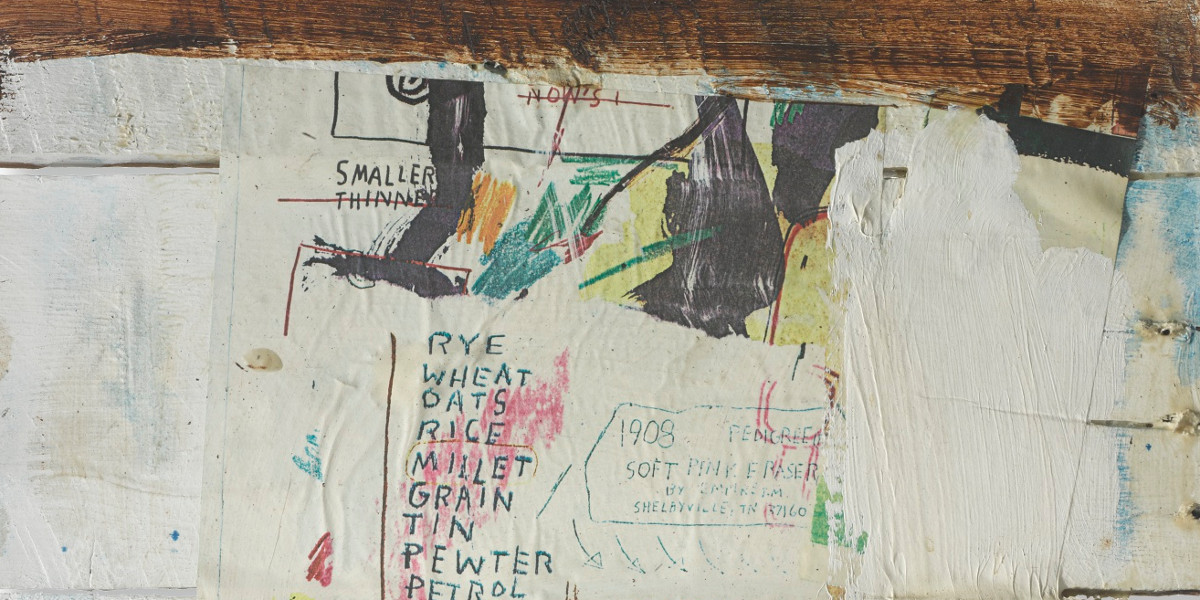 NOW'S
SMALLER
THINNE
RYE
WHEAT
OATS
RICE
MILLET
GRAIN
TIN
PEWTER
PETROL
1908 PEDIGREE
SOFT PINK ERASER
BY EMPIRE
SHELBYVILLE, TN 37160